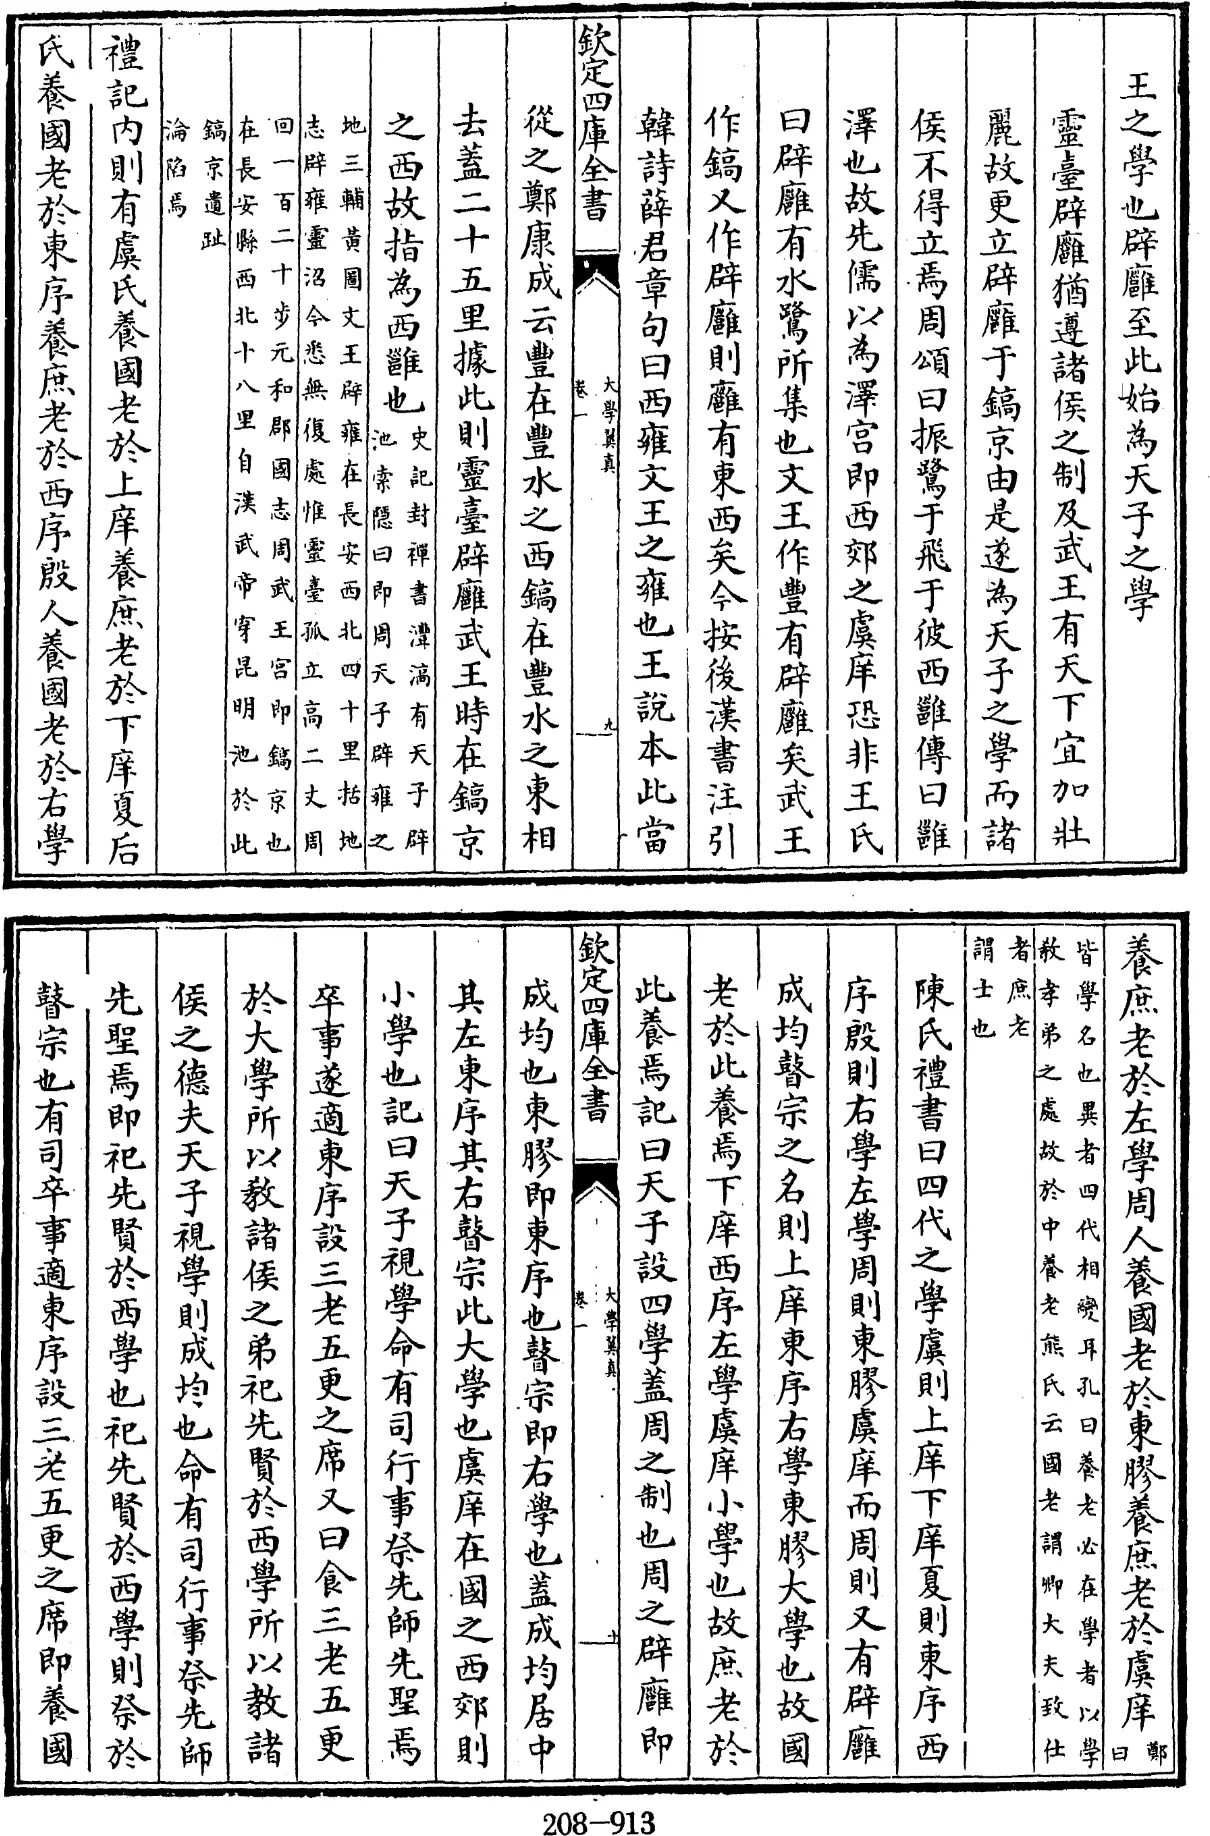 王之學也辟廱至此始為天子之學
靈臺辟廱猶遵諸侯之制及武王有天下宜加壯
麗故更立辟廱于鎬京由是遂為天子之學而諸
侯不得立焉周頌曰振鷺于飛于彼西雝傳曰雝
澤也故先儒以為澤宫即西郊之虞庠恐非王氏
曰辟廱有水鷺所集也文王作豐有辟廱矣武王
作鎬又作辟廱則廱有東西矣今按後漢書注引
韓詩薛君章句曰西雍文王之雍也王說本此當
欽定四庫全書
大學翼真
卷一
九
從之鄭康成云豐在豐水之西鎬在豐水之東相
去蓋二十五里據此則靈臺辟廱武王時在鎬京
之西故指為西雝也
史記封禪書灃滈有天子辟
池索隱曰即周天子辟雍之
地三輔黄圖文王辟雍在長安西北四十里括地
志辟雍靈沼今悉無復處惟靈臺孤立高二丈周
回一百二十步元和郡國志周武王宮即鎬京也
在長安縣西北十八里自漢武帝穿昆明池於此
鎬京遺趾
淪陷焉
禮記内則有虞氏養國老於上庠養庶老於下庠夏后
氏養國老於東序養庶老於西序殷人養國老於右學
養庶老於左學周人養國老於東膠養庶老於虞庠
鄭
曰
皆學名也異者四代相變耳孔曰養老必在學者以學
教孝弟之處故於中養老熊氏云國老謂卿大夫致仕
者庶老
謂士也
陳氏禮書曰四代之學虞則上庠下庠夏則東序西
序殷則右學左學周則東膠虞庠而周則又有辟廱
成均瞽宗之名則上庠東序右學東膠大學也故國
老於此養焉下庠西序左學虞庠小學也故庶老於
此養焉記曰天子設四學蓋周之制也周之辟廱即
欽定四庫全書
大學翼真
卷一
十
成均也東膠即東序也瞽宗即右學也蓋成均居中
其左東序其右瞽宗此大學也虞庠在國之西郊則
小學也記曰天子視學命有司行事祭先師先聖焉
卒事遂適東序設三老五更之席又曰食三老五更
於大學所以教諸侯之弟祀先賢於西學所以教諸
侯之德夫天子視學則成均也命有司行事祭先師
先聖焉即祀先賢於西學也祀先賢於西學則祭於
瞽宗也有司卒事適東序設三老五更之席即養國
208-913